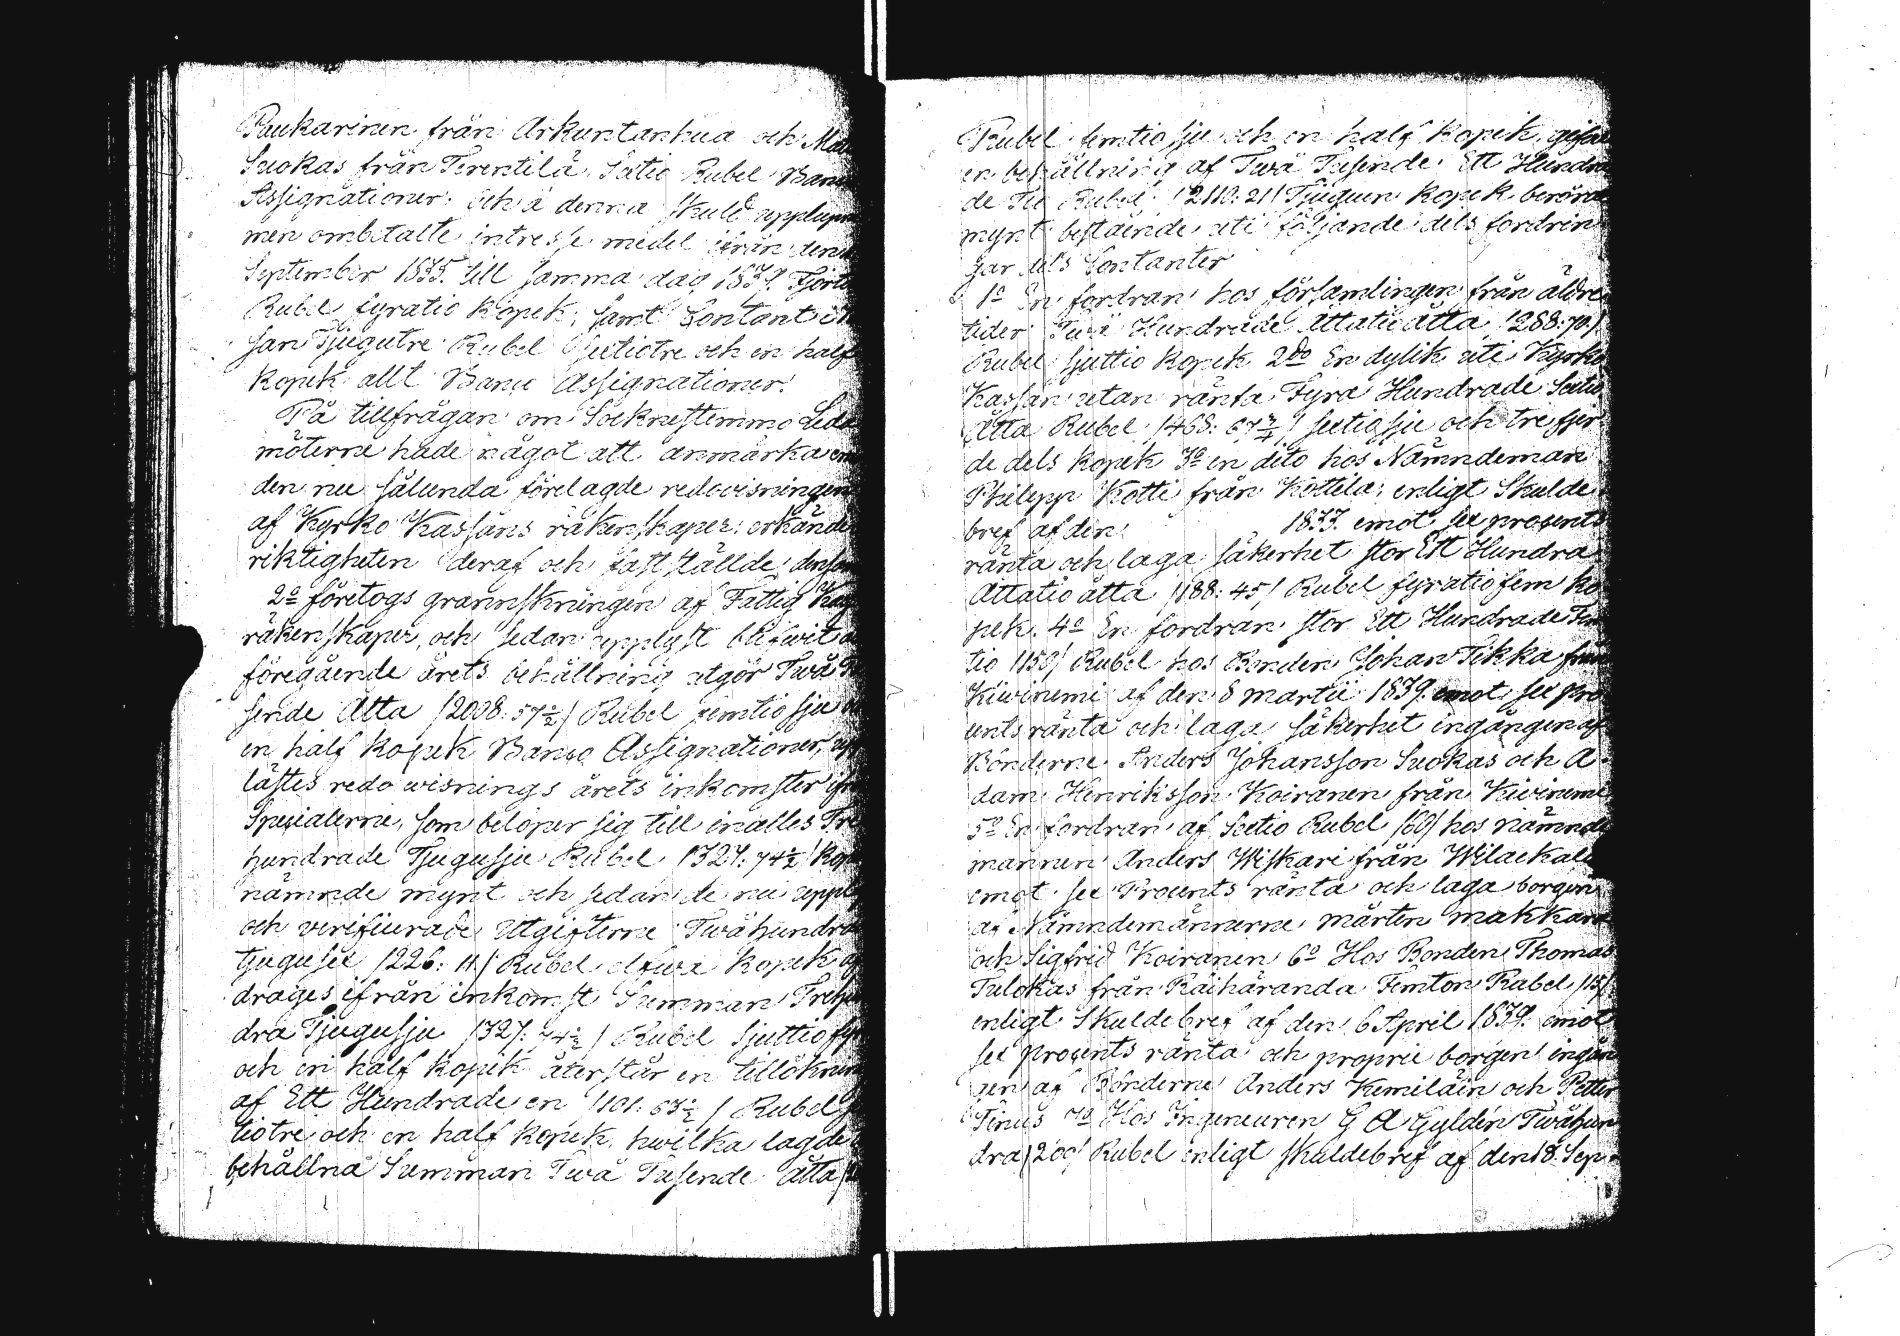 Paukarinen från Arkuntanhua och
Suokas från Terentilä, Sextio Rubel Banco
Assignationer. och å denna skuld upplupne
men ombetalte intresse medel ifrån den
September 1835. till samma dag 1839. Fjorton
Rubel fyratio kopek, samt Contant i
san Tjugutre Rubel Sextiotre och en half
kopek allt Banco Assignationer.
På tillfrågan om Socknestemmo Leda
möterne hade något att anmärka emot
den nu sålunda förelagde redovisningen
af Kyrko Kassans räkenskaper: erkände
riktigheten deraf och fastställde densamma
2o företogs grannskningen af Fattig
räkenskaper, och sedan upplyst blifwit
föregående årets behållning utgör Twå Tu
sende Åtta /2008: 57½/ Rubel femtiosju och
en half kopek Banco Assignationer, upp
lästes redowisnings årets inkomster
Specialerne, som belöper sig till inalles Tre
hundrade Tjugusju Rubel /327: 74½/ kopek
nämnde mynt och sedan de nu
och verificerade Utgifterne Twåhundra
tjugusex /226: 11/ Rubel elfwa kopek af
drages ifrån inkomst Summan Trehun
dra Tjugusju /327: 74½/ Rubel sjuttiofyra
och en half kopek återstår en tillökning
af Ett Hundrade en /101: 63½/ Rubel sex
tiotre och en half kopek. hwilka lagde
behållna Summan Twå Tusende Åtta
Rubel femtiosju och en half kopek,
en behållning af Twå Tusende Ett Hundra
de Tio Rubel /2110: 21/ Tjuguen kopek berörde
mynt bestående uti följande dels fordrin
gar dels Contanter
1o En fordran hos församlingen från äldre
tider Twå Hundrade Åttatioåtta /288:70./
Rubel sjuttio kopek 2do En dylik uti Kyrko
Kassan utan ränta Fyra Hundrade Sextio
Åtta Rubel /468: 67¾/ sextiosju och tre fjer
de dels kopek 3o en dito hos Nämndeman
Philipp Kotti från Kottila: enligt Skulde
bref af den 1833. emot sex procents
ränta och laga säkerhet stor Ett Hundra
Åttatioåtta /188: 45/ Rubel fyratiofem ko
pek. 4o En fordran stor Ett Hundrade Fem
tio /150/ Rubel hos Bonden Johan Tikka från
Kiwinemi af den 8 martii 1839. emot sex pro
cents ränta och laga säkerhet ingången af
Bönderne Anders Johansson Suokas och A
dam Henriksson Koiranen från Kiwinemi
5o En fordran af Sextio Rubel /60/ hos nämnde
mannen Anders Wiskari från
emot sex Procents ränta och laga borgen
af Nämndemännerne mårten makkara
och Sigfrid Koiranen 6o Hos Bonden Thomas
Tulokas från Räihäranda Femton Rubel /15/
enligt Skuldebref af den 6 April 1839. emot
sex procents ränta och proprie borgen ingån
gen af Bönderne Anders Kemiläin och Petter
Pinus 7o Hos Ingeneuren G A Gyldén Twåhun
dra /200/ Rubel enligt skuldebref af den 18. Sep-